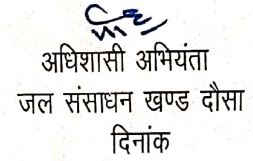 अधिशासी अभियंता
जल संसाधन खण्ड दौसा
दिनांक